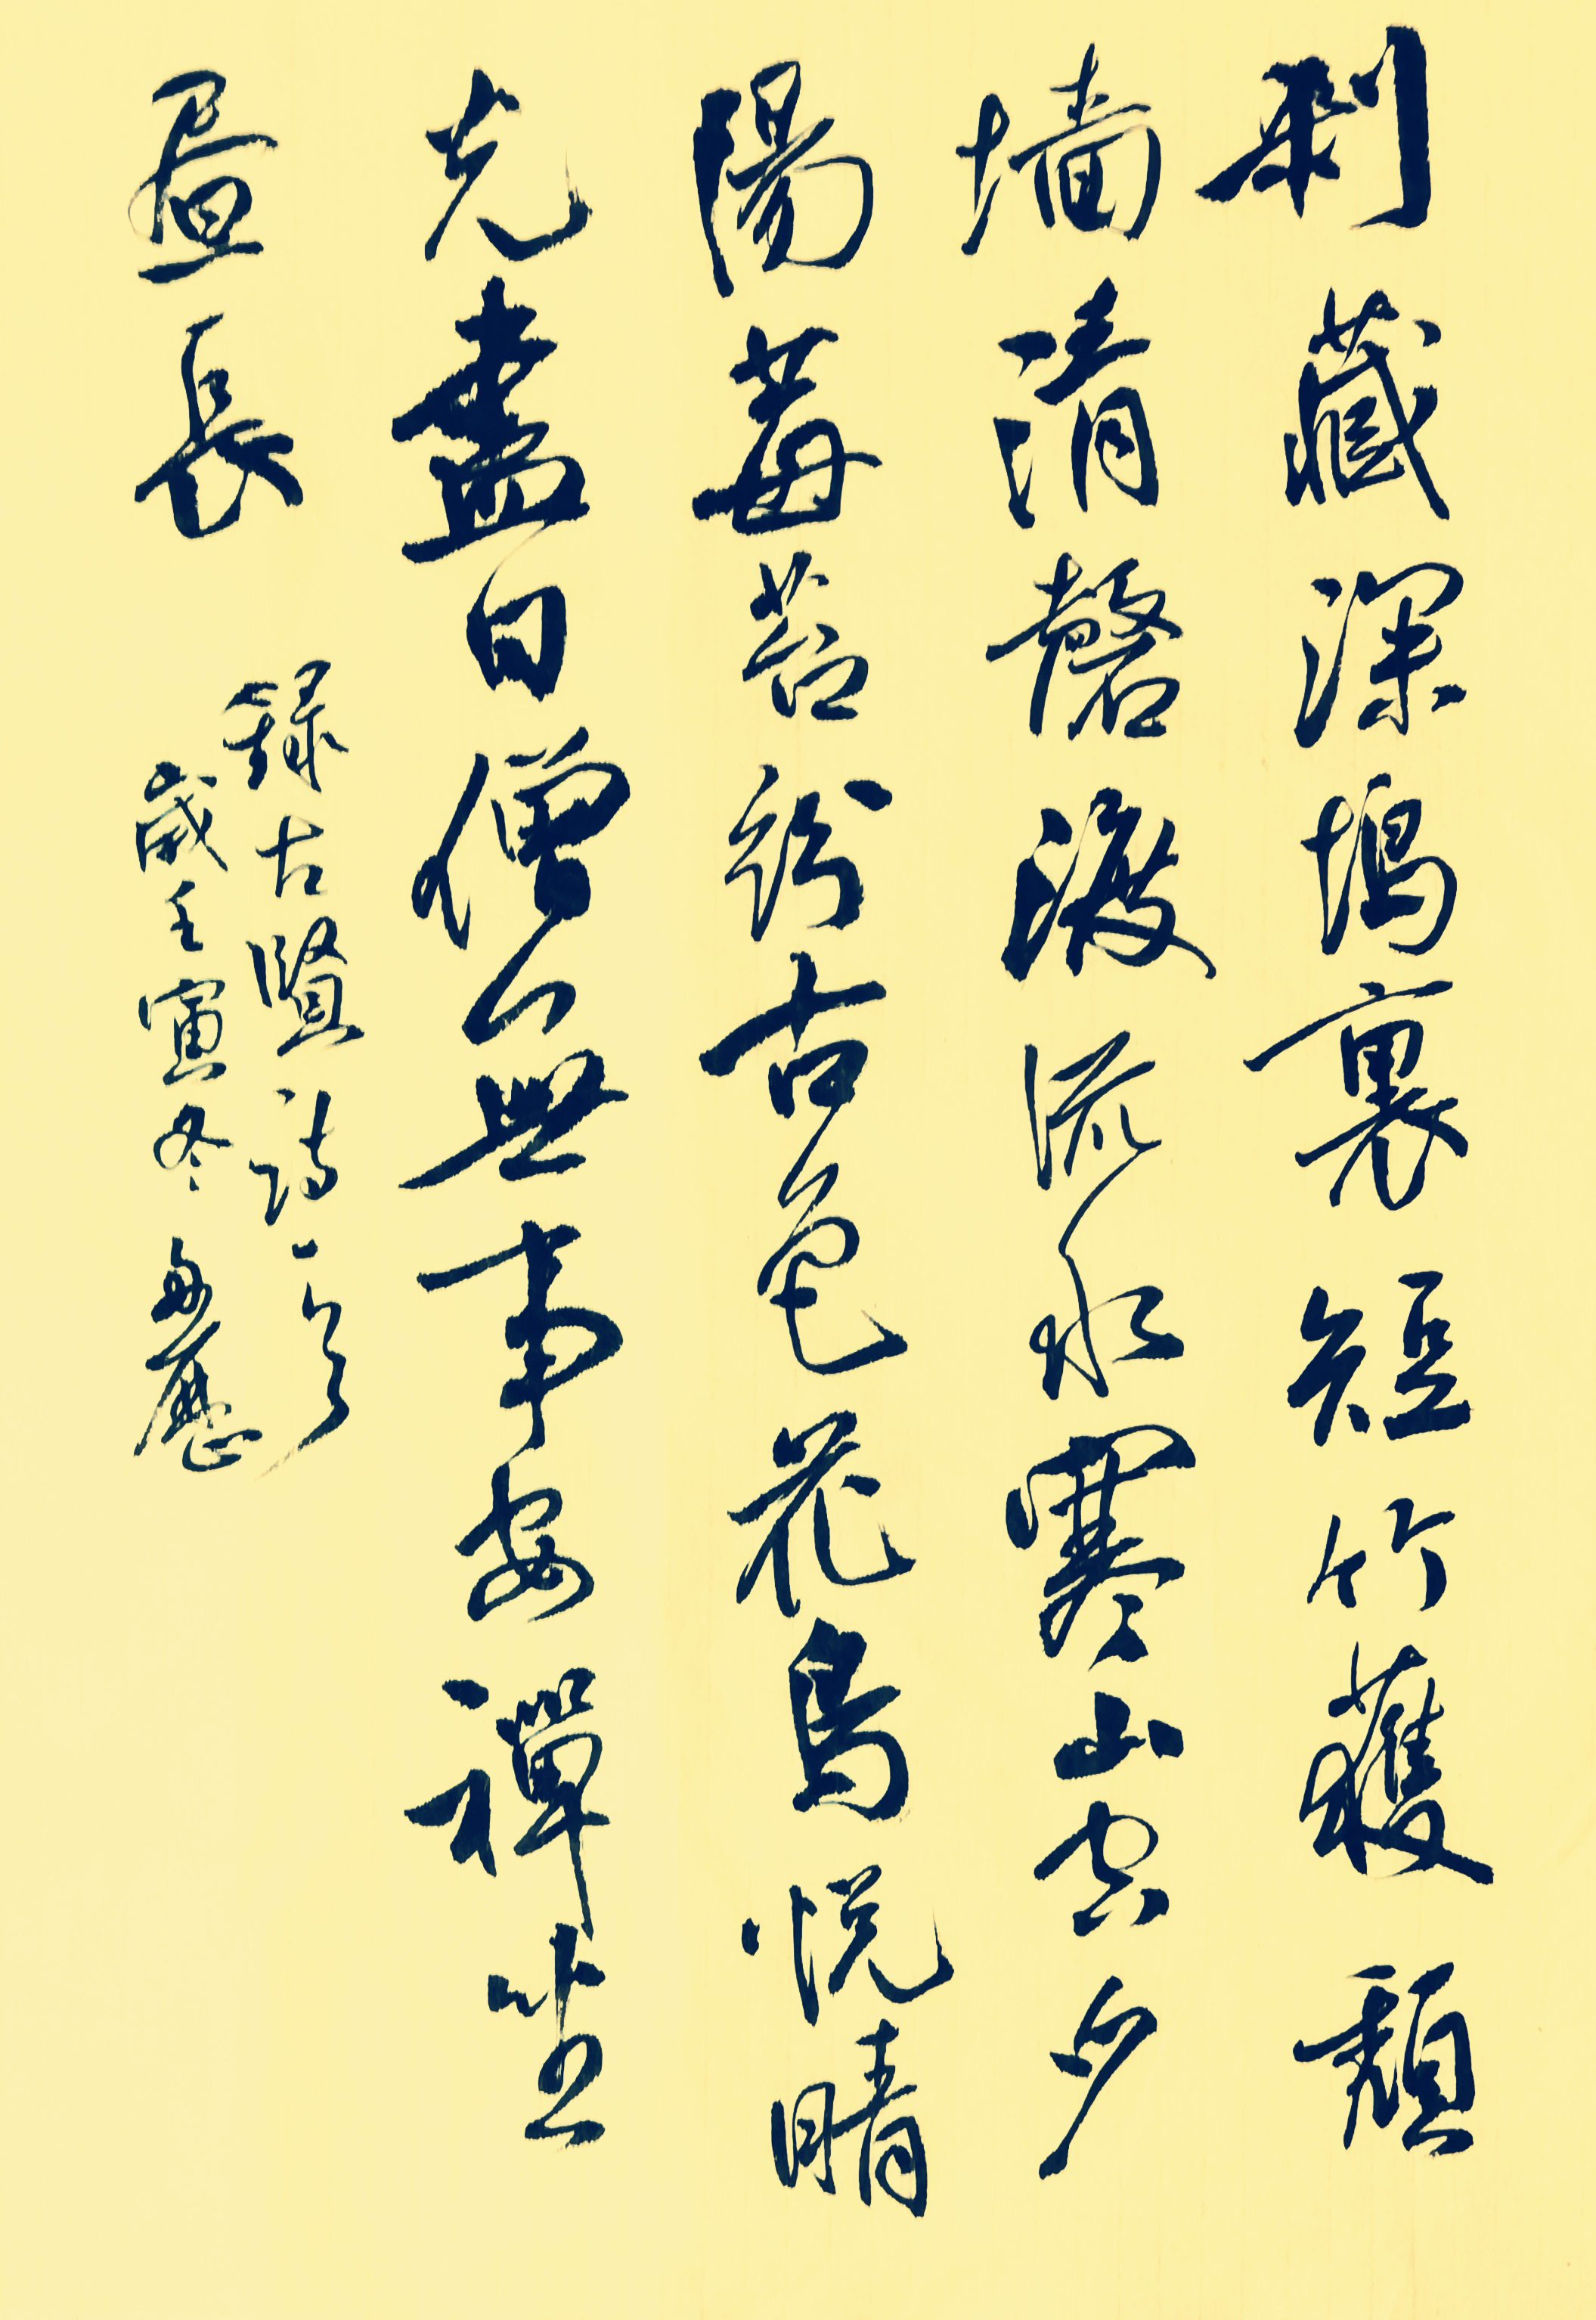 刹藏深塢裏短竹護頹
墻清磬渡流水寒山空夕
陽莓苔古色花鳥悅晴
光盡日僧無事安禪坐
晝長
錄古賢詩一首
歲壬寅冬